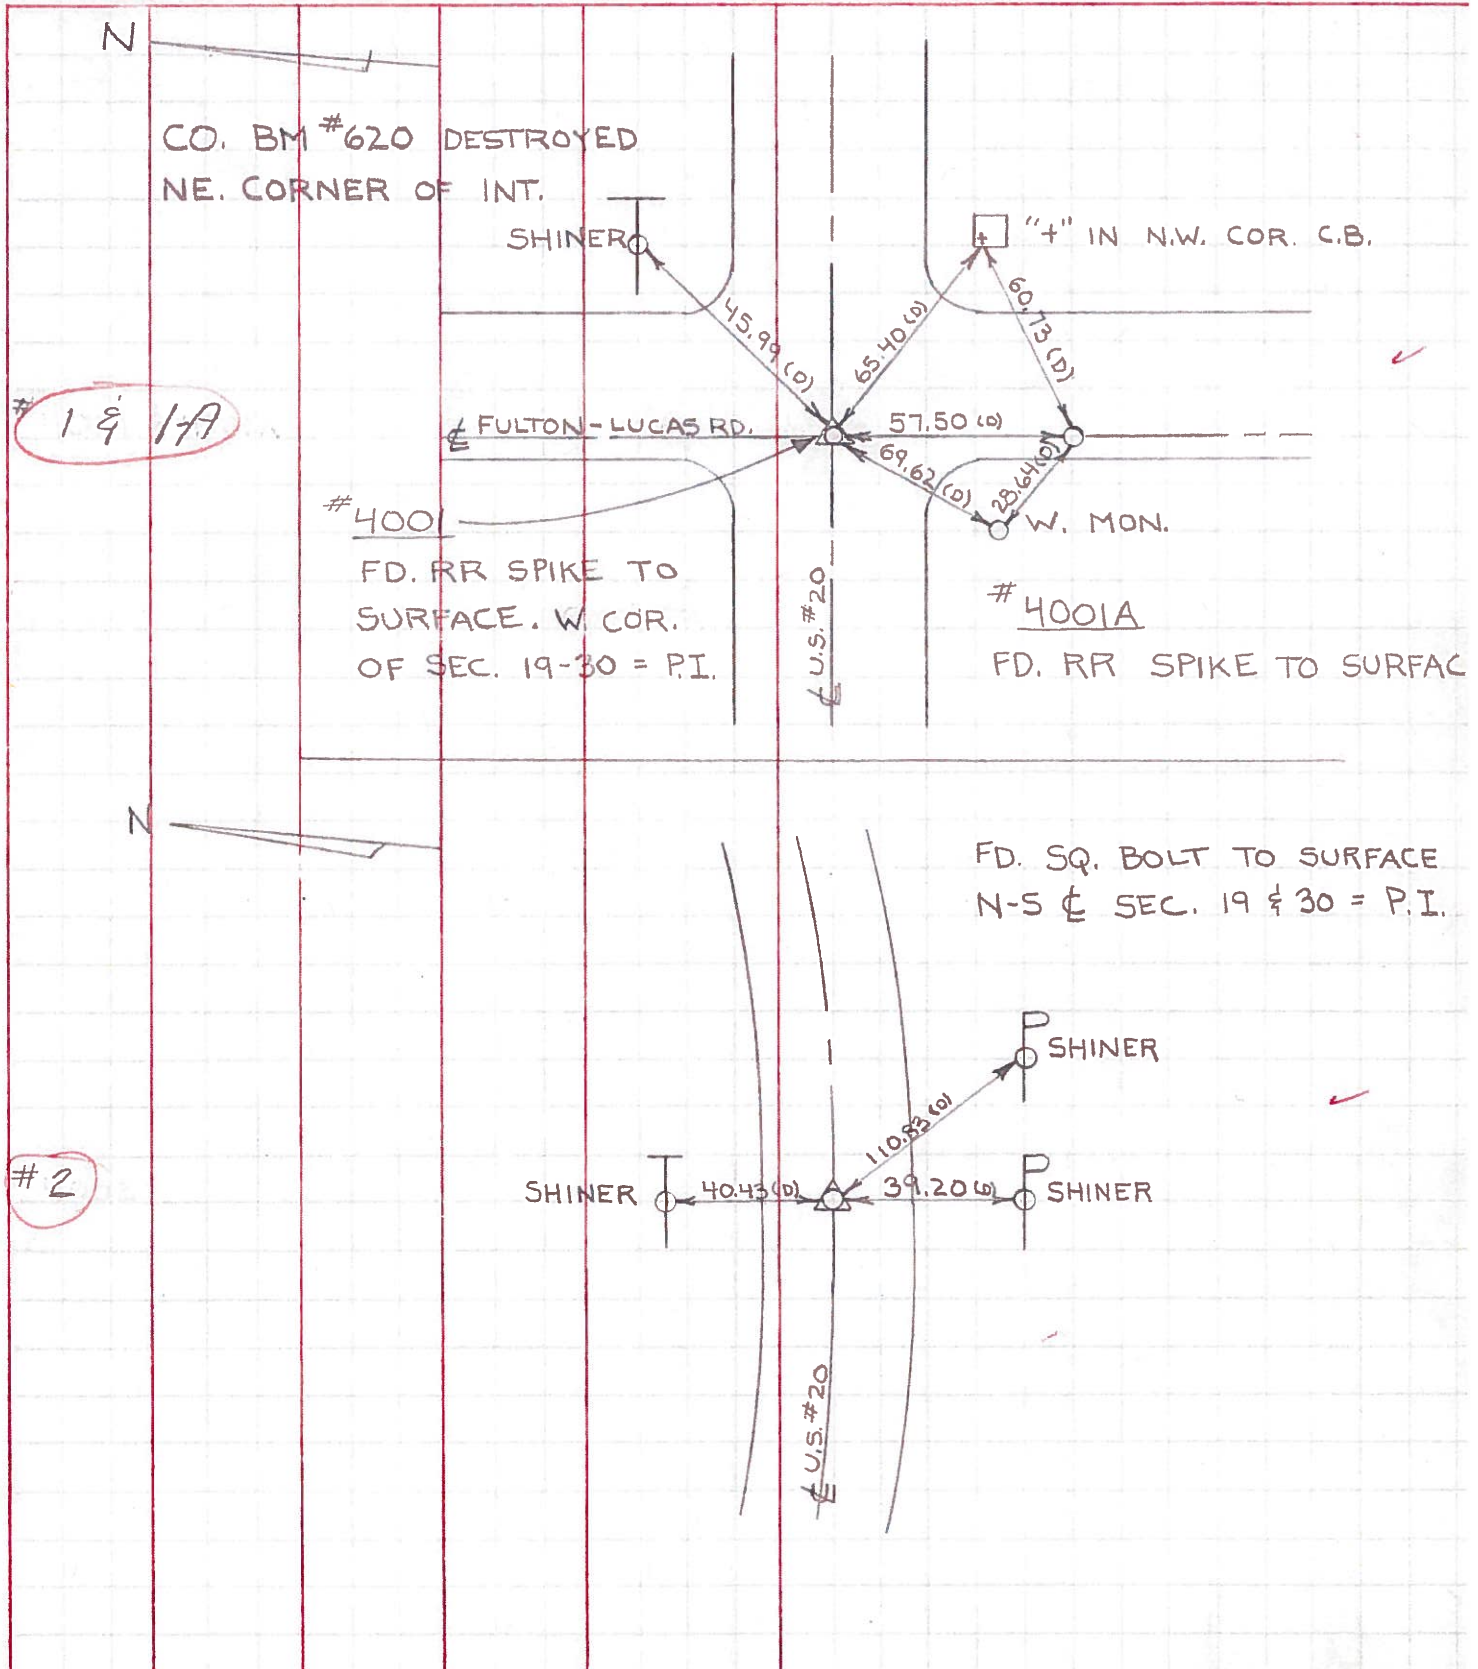 N
CO. BM #620 DESTROYED
NE. CORNER OF INT.
SHINER
"+" IN N.W. COR. C.B.
+
45.99 (D)
65.40 (D)
60.73 (D)
# 1 & 1-A
℄ FULTON-LUCAS RD.
57.50 (D)
69.62 (D)
28.64 (D)
W. MON.
#4001
FD. RR SPIKE TO
SURFACE. W COR.
OF SEC. 19-30 = P.I.
℄ U.S. #20
#4001A
FD. RR SPIKE TO SURFAC
N
FD. SQ. BOLT TO SURFACE
N-S ℄ SEC. 19 & 30 = P.I.
SHINER
110.83 (D)
#2
SHINER
40.43 (D)
39.20 (D)
SHINER
℄ U.S. #20